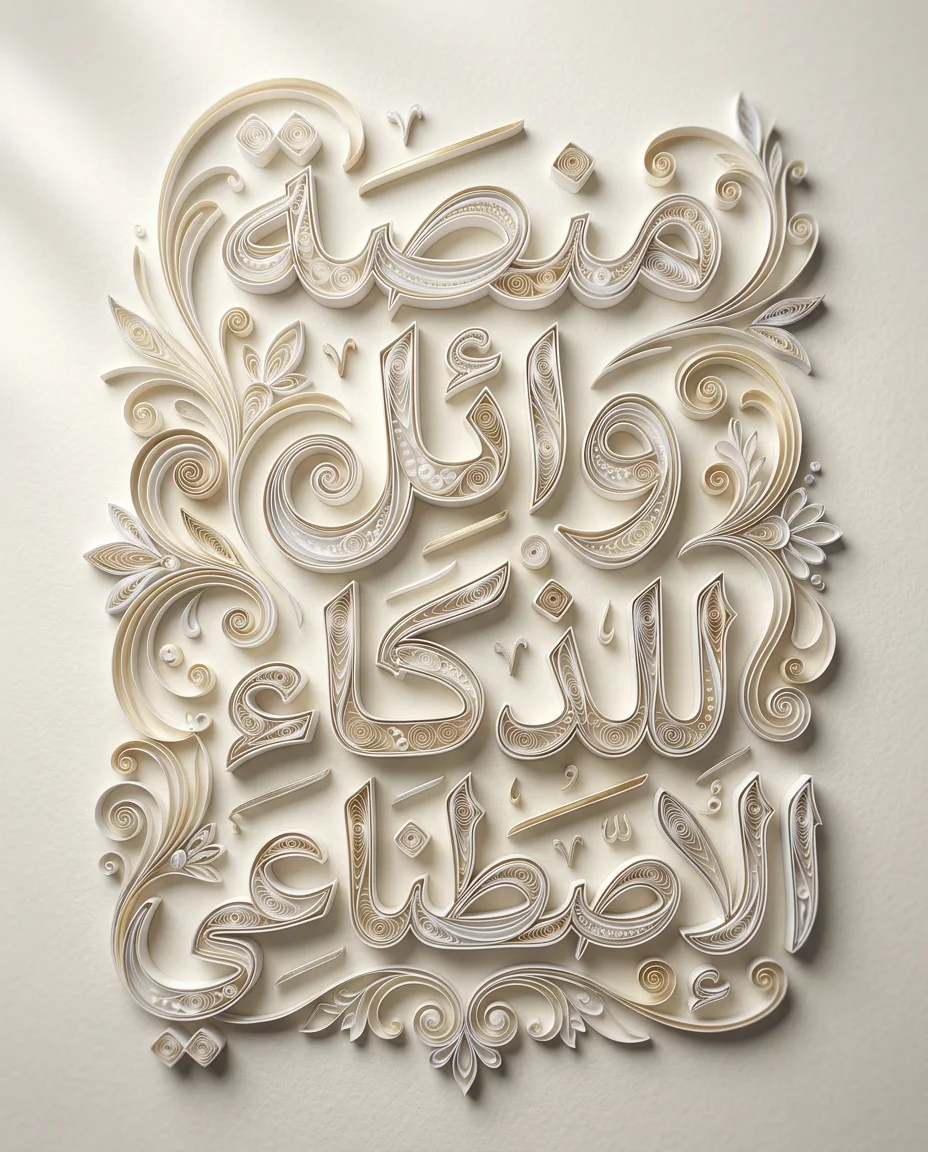 منصة
وائل
للذكاء
الإصطناعي